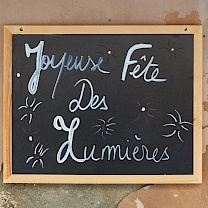 Joyeuse Fête
Des
Lumières